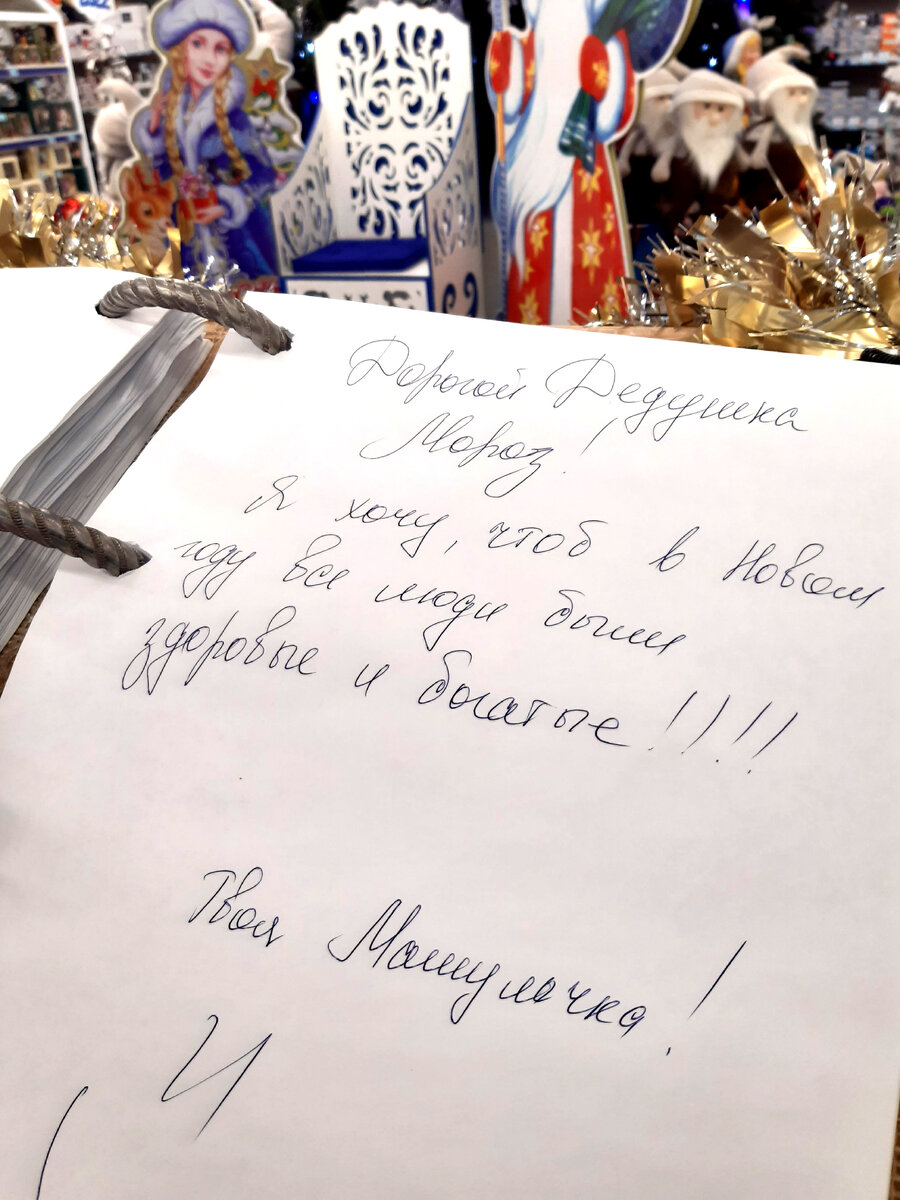 Дорогой Дедушка
Мороз!
Я хочу, чтоб в Новом
году все люди были
здоровые и богатые!!!!
Твоя Машулечка!
И